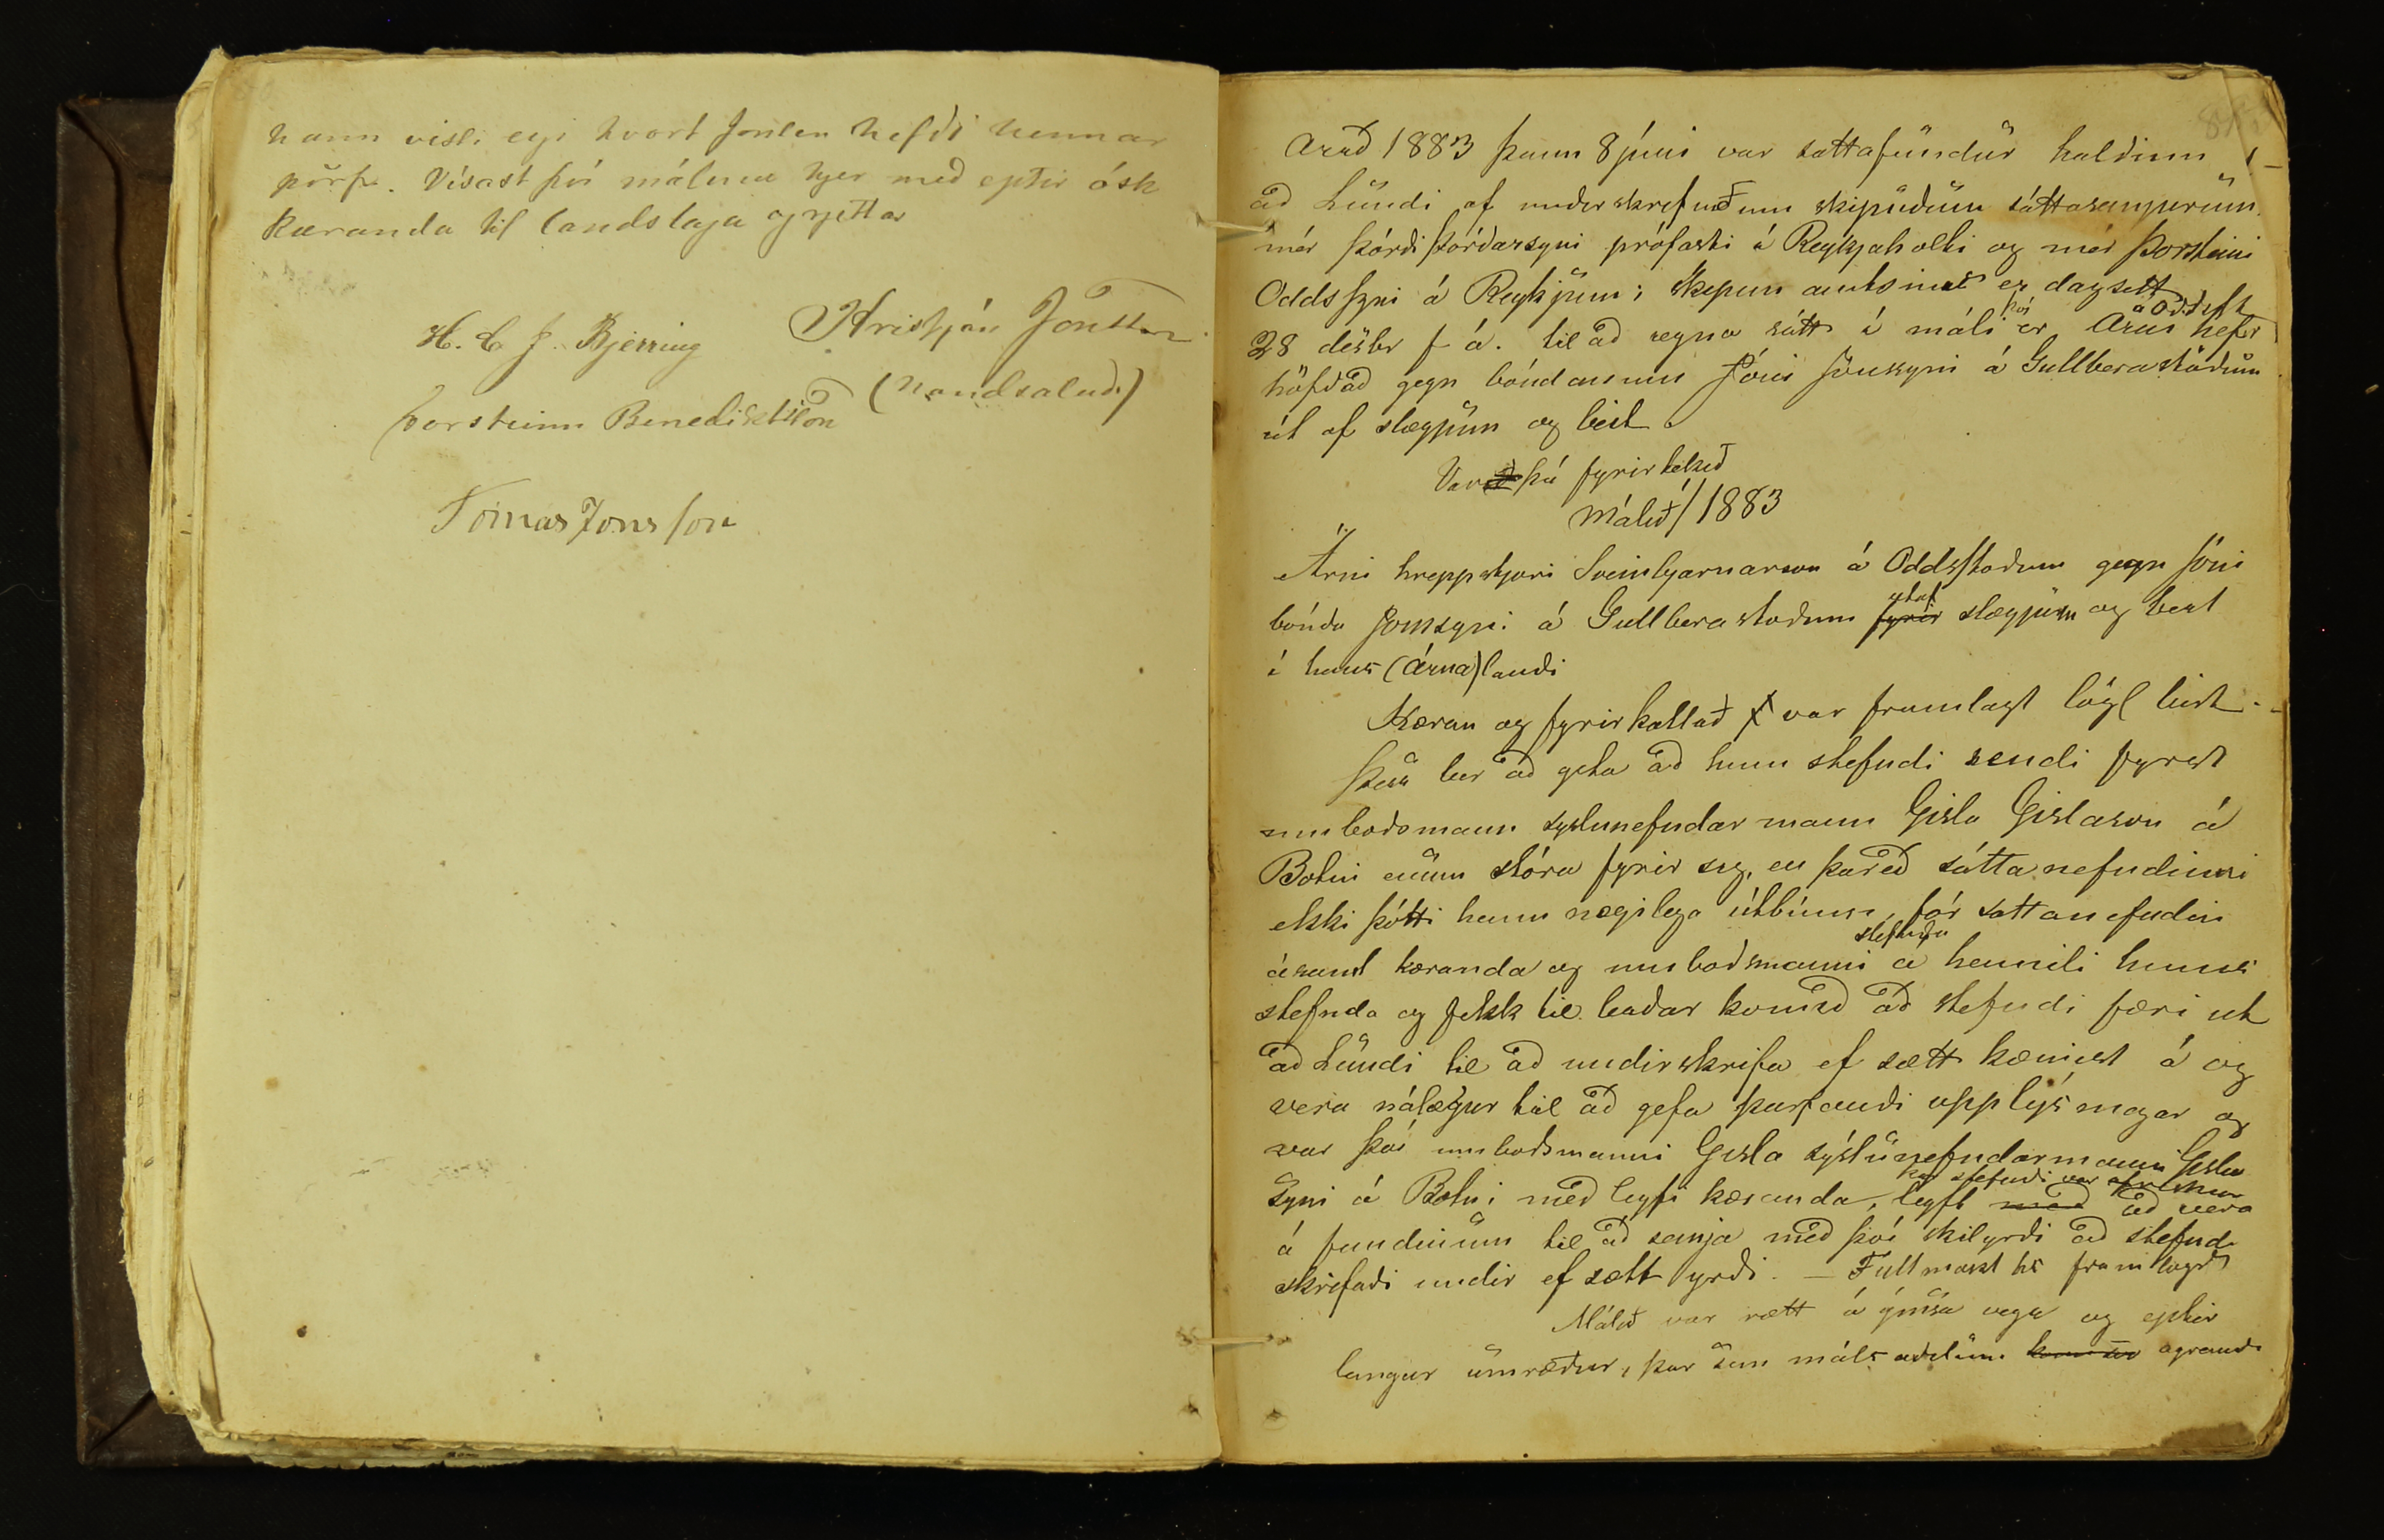 hann vissi eigi hvort Jonsen hefði hennar
þörf. Vísast því málinu hjer með eptir ósk
kæranda til landslaga og rjettar
H. C. J. Bjerring Kristján Jónsson
(handsalað)
Þorsteinn Benediktsson
Tómas Jonsson
Árið 1883 þann 8 júni var sáttafundur haldinn
að Lundi af underskrifuðum skipuðum sáttasemjurum
mér Þórði Þórðarsyni prófasti í Reykjaholti og mér Þorsteini
Oddssyni á Reykjum; skipun amtsins er dagsett
því á Oddsst
28 desbr f á. til að reyna sátt í máli er Árni hefir
höfðað gegn bóndanum Jóni Jónssyni á Gullberastöðum
út af slægjum og beit
Var þá fyrirtekið
Málið / 1883
Árni hreppstjori Sveinbjarnarson á Oddsstöðum gegn Jóni
bónda Jonssyni á Gullberastöðum fyrir slægjum og beit
útaf
í hans (Árna) landi
Kæran og fyrirkallað var framlagt lögl birt -
Þess ber að geta að hinn stefndi sendi fyrst
umboðsmann syslunefndarmann Gisla Gislason á
Botni enum stóra fyrir sig, en þareð sáttanefndinni
ekki þótti hann nægilega útbúinn, fór sattanefndin
stefnda
ásamt kæranda og umboðsmanni a heimili hins
stefnda og fekk til leiðar komið að stefndi færi ut
að Lundi til að undirskrifa ef sætt kæmist á og
vera nálægur til að gefa þurfandi upplýsingar og
var því umboðsmanni Gisla sýslunefndarmanni Gisla
syni á Botni með leyfi kæranda, leyft með að vera
á fundinum til að semja með því skilyrði að stefndi
skrifaði undir ef sætt yrði. — Fullmakt hs framlögð
Málið var rætt á ýmsa vegu og eptir
langar umræður, þar sem málsaðilum